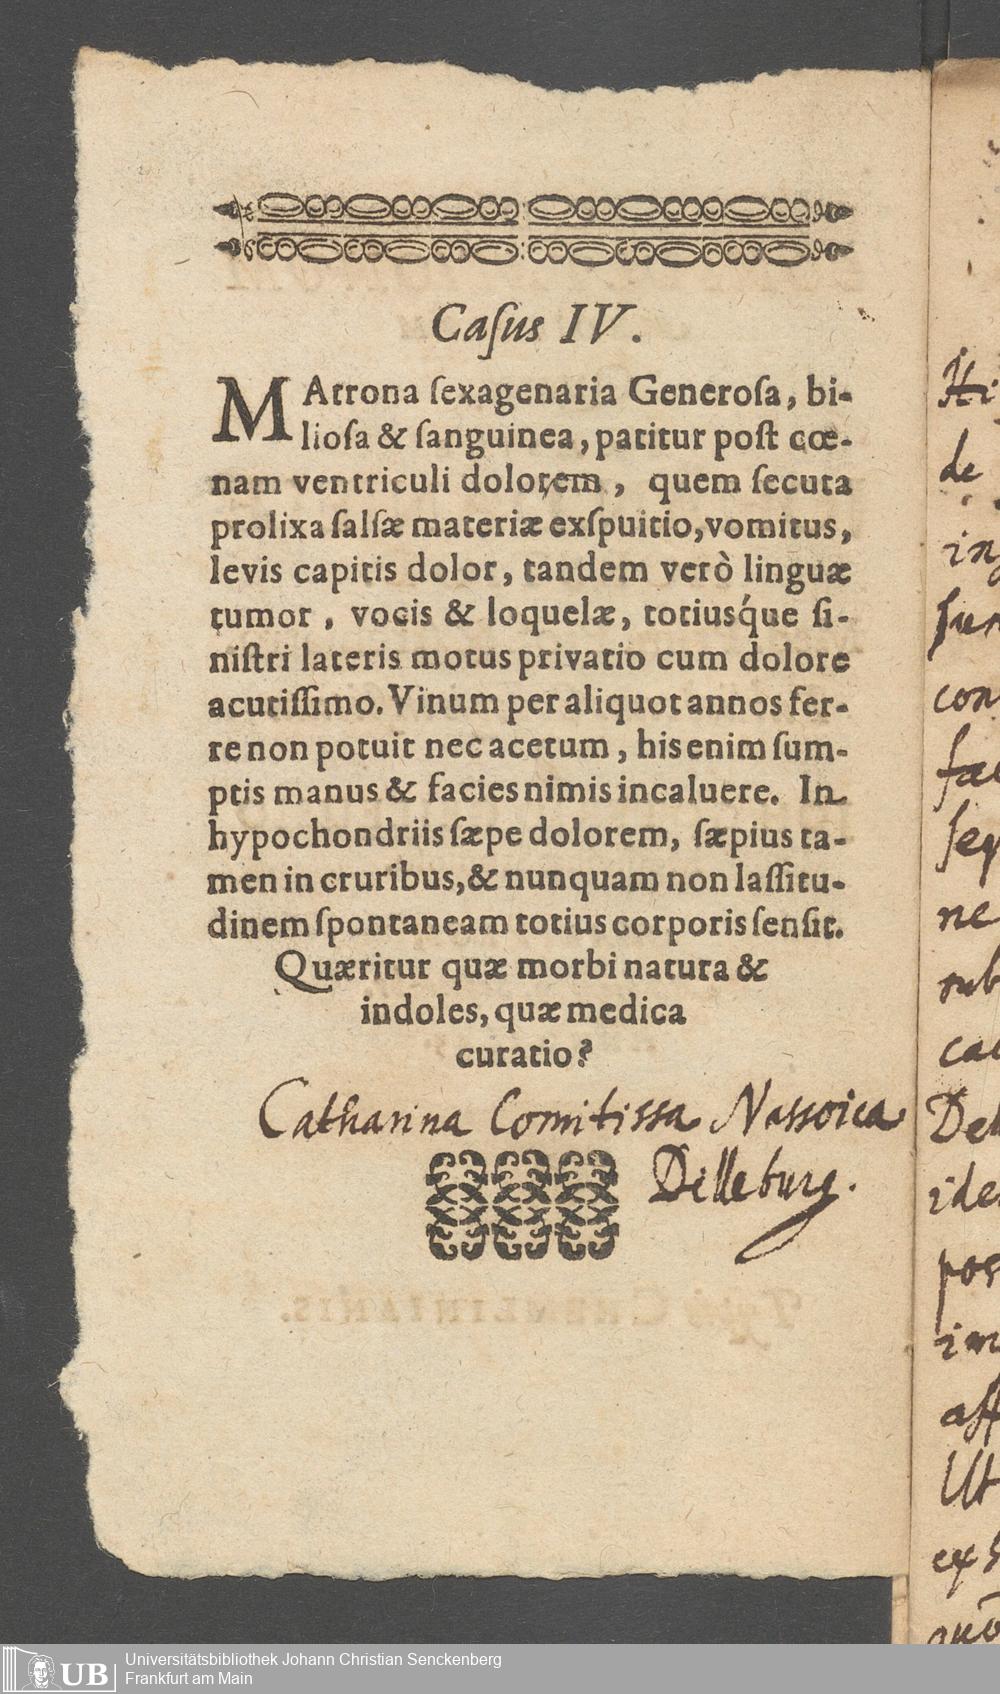 Caſus IV.
MAtrona ſexagenaria Generoſa, bi-
lioſa & ſanguinea, patitur poſt cœ-
nam ventriculi dolorem, quem ſecuta
prolixa ſalſæ materiæ exſpuitio, vomitus,
levis capitis dolor, tandem verò linguæ
tumor, vocis & loquelæ, totiusq́ue ſi-
niſtri lateris motus privatio cum dolore
acutiſſimo. Vinum per aliquot annos fer-
re non potuit nec acetum, his enim ſum-
ptis manus & facies nimis incaluere. In
hypochondriis ſæpe dolorem, ſæpius ta-
men in cruribus, & nunquam non laſſitu-
dinem ſpontaneam totius corporis ſenſit.
Quæritur quæ morbi natura &
indoles, quæ medica
curatio?
Catharina Comitissa Nassoica
Dilleburg.
Hi
de
in
con
ne
rub
Del
ide
pos
im
aff
Ut
Universitätsbibliothek Johann Christian Senckenberg
Frankfurt am Main
UB